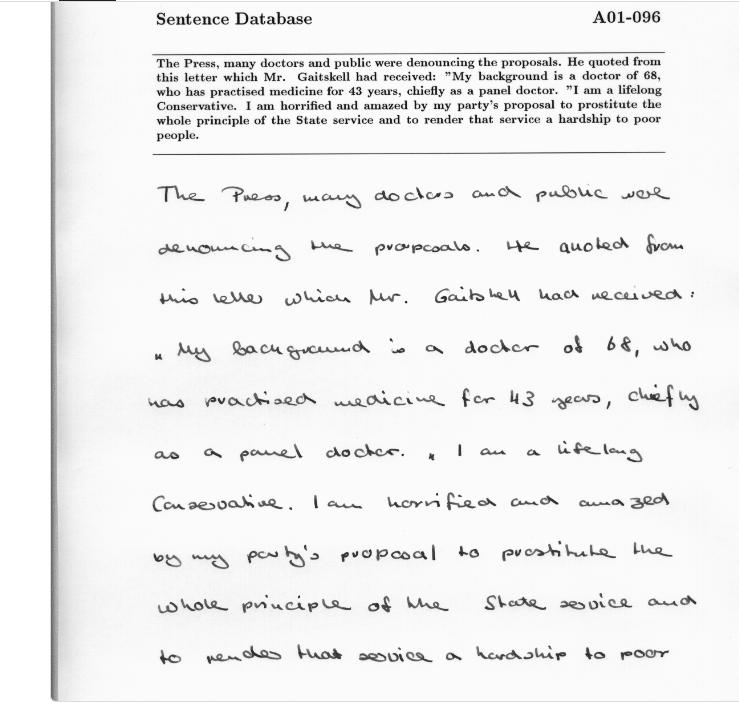 Sentence Database A01-096
The Press, many doctors and public were denouncing the proposals. He quoted from
this letter which Mr. Gaitskell had received: "My background is a doctor of 68,
who has practised medicine for 43 years, chiefly as a panel doctor. "I am a lifelong
Conservative. I am horrified and amazed by my party's proposal to prostitute the
whole principle of the State service and to render that service a hardship to poor
people.
The Press, many doctors and public were
denouncing the proposals. He quoted from
this letter which Mr. Gaitskell had received:
" My background is a doctor of 68, who
has practised medicine for 43 years, chiefly
as a panel doctor. " I am a lifelong
Conservative. I am horrified and amazed
by my party's proposal to prostitute the
whole principle of the State service and
to render that service a hardship to poor